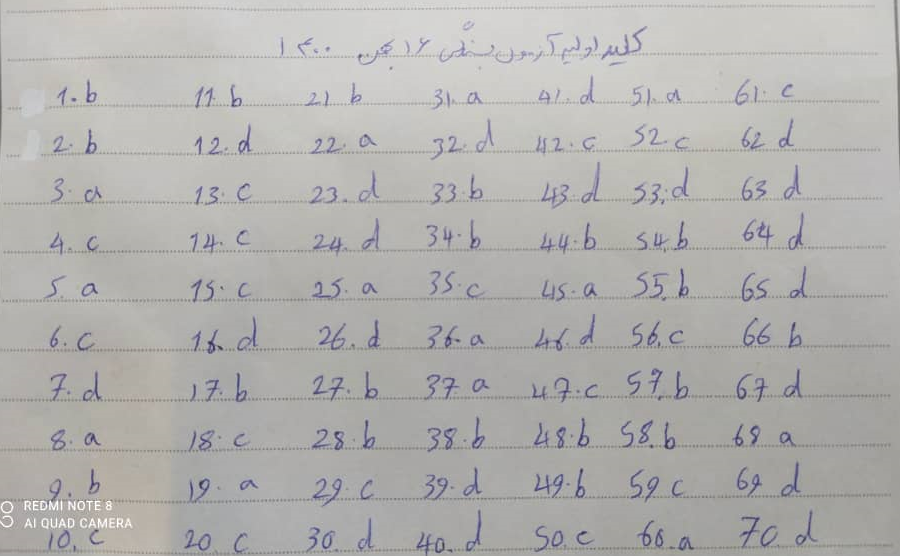 کلید اولیه آزمون بسندگی ۱۶ بهمن ۱۴۰۰
1. b 11. b 21 b 31. a 41. d 51. a 61. c
2. b 12. d 22. a 32. d 42. c 52. c 62 d
3. a 13. c 23. d 33. b 43. d 53. d 63 d
4. c 14. c 24. d 34. b 44. b 54. b 64 d
5. a 15. c 25. a 35. c 45. a 55. b 65 d
6. c 16. d 26. d 36. a 46. d 56. c 66 b
7. d 17. b 27. b 37 a 47. c 57. b 67 d
8. a 18. c 28. b 38. b 48. b 58. b 68 a
9. b 19. a 29. c 39. d 49. b 59 c 69 d
10. c 20 c 30. d 40. d 50. c 60. a 70. d
REDMI NOTE 8
AI QUAD CAMERA